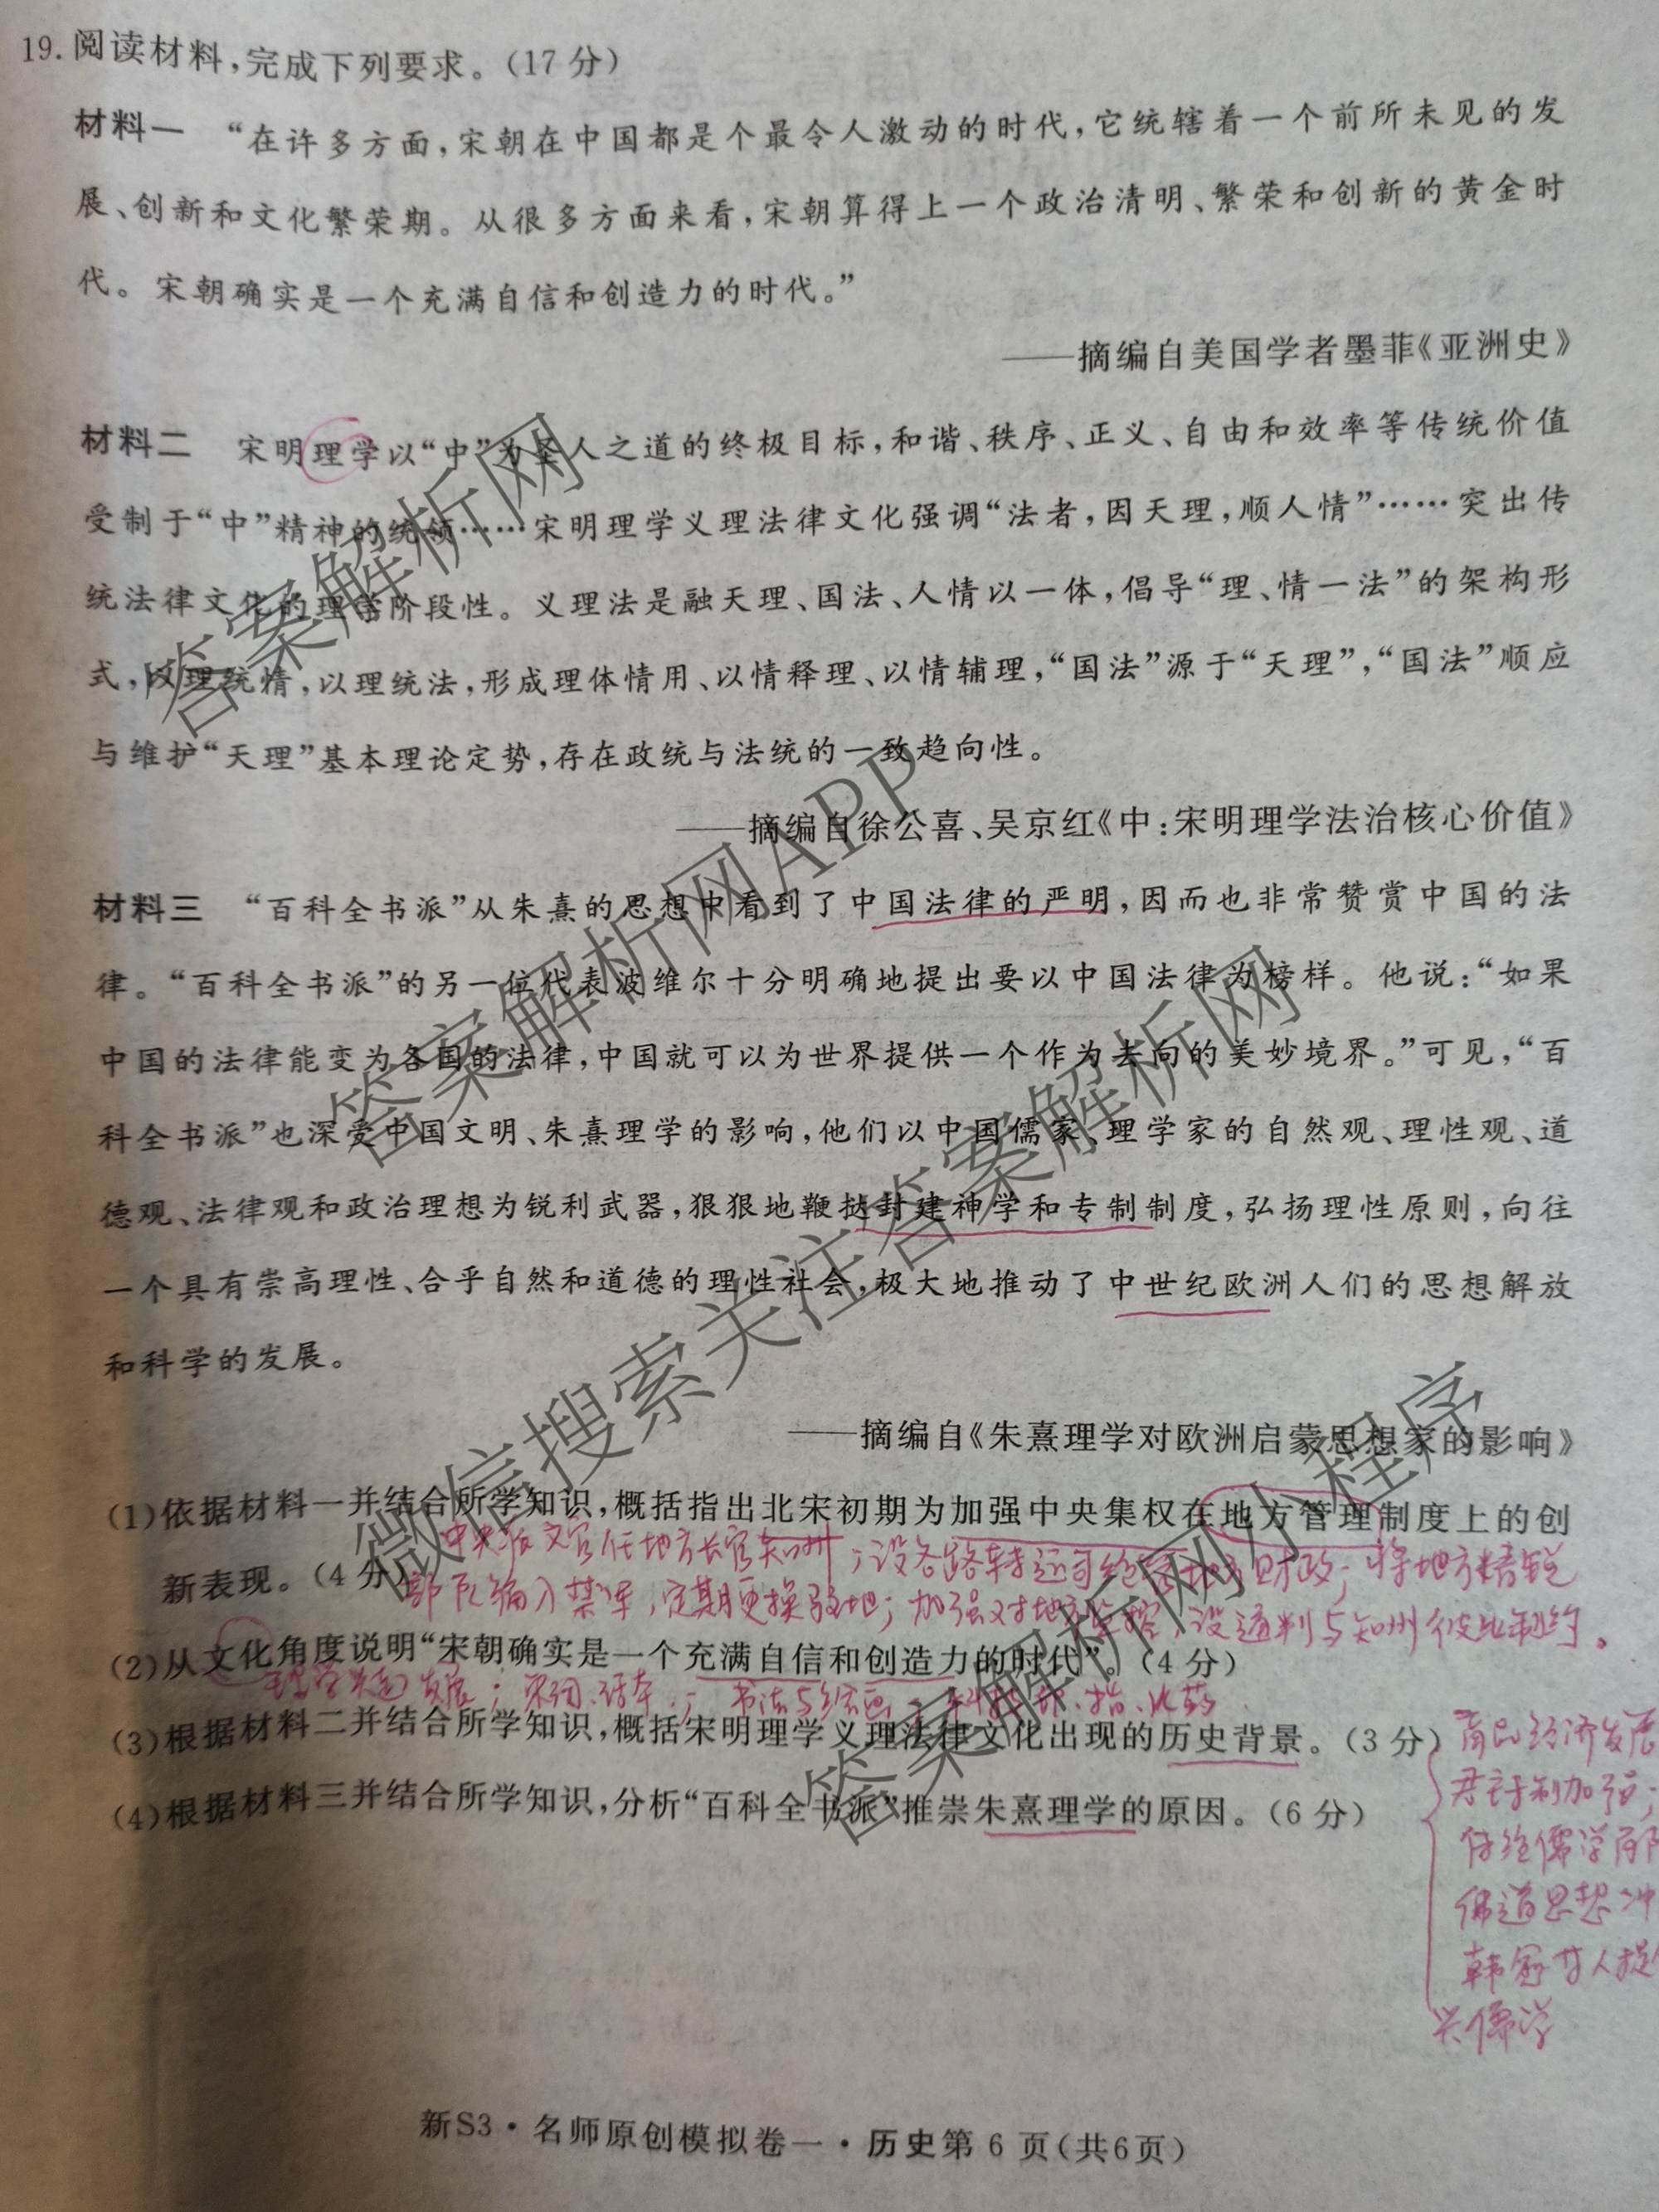 19.阅读材料,完成下列要求。(17分)
材料一 “在许多方面,宋朝在中国都是个最令人激动的时代,它统辖着一个前所未见的发
展、创新和文化繁荣期。从很多方面来看,宋朝算得上一个政治清明、繁荣和创新的黄金时
代。宋朝确实是一个充满自信和创造力的时代。”
——摘编自美国学者墨菲《亚洲史》
材料二 宋明理学以“中”为圣人之道的终极目标,和谐、秩序、正义、自由和效率等传统价值
受制于“中”精神的统领……宋明理学义理法律文化强调“法者,因天理,顺人情”……突出传
统法律文化的理学阶段性。义理法是融天理、国法、人情以一体,倡导“理、情一法”的架构形
式,以理统情,以理统法,形成理体情用、以情释理、以情辅理,“国法”源于“天理”,“国法”顺应
与维护“天理”基本理论定势,存在政统与法统的一致趋向性。
——摘编自徐公喜、吴京红《中:宋明理学法治核心价值》
材料三 “百科全书派”从朱熹的思想中看到了中国法律的严明,因而也非常赞赏中国的法
律。“百科全书派”的另一位代表波维尔十分明确地提出要以中国法律为榜样。他说:“如果
中国的法律能变为各国的法律,中国就可以为世界提供一个作为去向的美妙境界。”可见,“百
科全书派”也深受中国文明、朱熹理学的影响,他们以中国儒家、理学家的自然观、理性观、道
德观、法律观和政治理想为锐利武器,狠狠地鞭挞封建神学和专制制度,弘扬理性原则,向往
一个具有崇高理性、合乎自然和道德的理性社会,极大地推动了中世纪欧洲人们的思想解放
和科学的发展。
——摘编自《朱熹理学对欧洲启蒙思想家的影响》
(1)依据材料一并结合所学知识,概括指出北宋初期为加强中央集权在地方管理制度上的创
中央派文官任地方长官知州;设各路转运司统管地方财政;将地方精锐
新表现。(4分)
部队编入禁军,定期更换驻地;加强对地方监控,设通判与知州彼此制约。
(2)从文化角度说明“宋朝确实是一个充满自信和创造力的时代”。(4分)
发展;宋词、话本;书法与绘画;
(3)根据材料二并结合所学知识,概括宋明理学义理法律文化出现的历史背景。(3分)
商品经济发展
君主专制加强;
(4)根据材料三并结合所学知识,分析“百科全书派”推崇朱熹理学的原因。(6分)
传统儒学
佛道思想冲
韩愈等人提
兴儒学
新S3·名师原创模拟卷一·历史第6页(共6页)
答案解析网
答案解析网APP
微信搜索关注答案解析网
答案解析网小程序